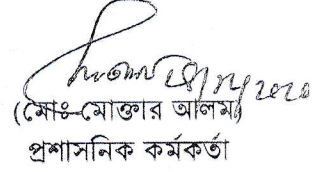 (মোঃ মোক্তার আলম)
প্রশাসনিক কর্মকর্তা